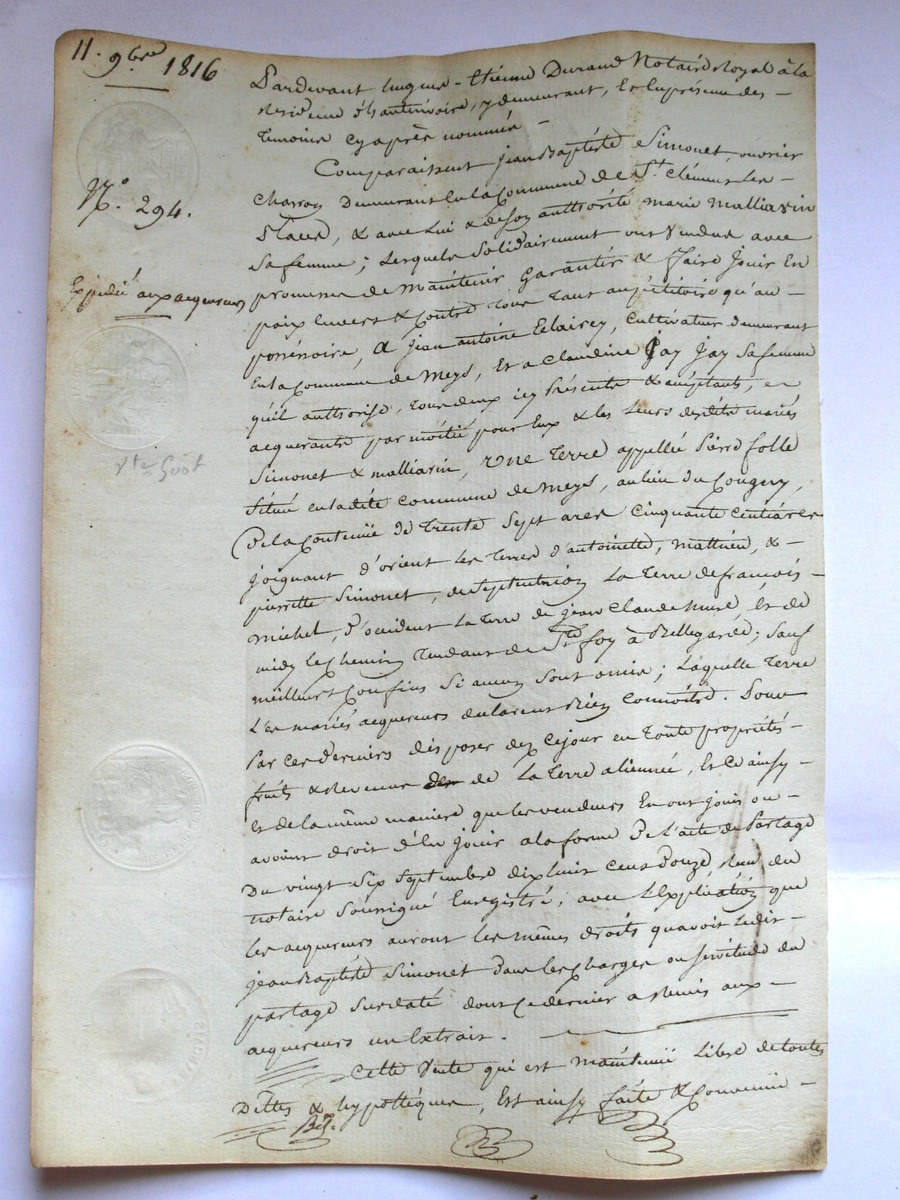 11. 9bre 1816
N.° 294.
Expédié aux acquereurs
Pardevant hugues-Etienne Durand Notaire Royal à la
Résidence d'hauterivoire, y demeurant, Et En présence des
Temoins Cy après nommés
Comparaissent jean Baptiste Simonet, ouvrier
Charron Demeurant En la Commune de St. Clément les
Places, & avec Lui & de son authorité marie malliavin
Sa femme; Lesquels Solidairement ont Vendus avec
promesse de maintenir garantir & faire jouir En
paix Envers & Contre Tous Tant au pétitoire qu'au
possessoire, A jean antoine Eclairey, Cultivateur demeurant
En la Commune de Meys, Et a Claudine Jay Jay Sa femme
qu'il authorise, Tous deux icy Présents & acceptants,
acquerants par moitié pour Eux & les Leurs desdits mariés
Simonet & malliavin, Une Terre appellée Pierre folle
Située en ladite Commune de Meys, au lieu du Cougery,
De la Contenüe de Trente Sept ares Cinquante Centiares
joignant d'orient les Terres d'antoinette, matthieu, &
pierrette Simonet, de Septentrion La Terre de françois
michel, d'occident La Terre de jean Claude, Et de
midy le Chemin Tendant de Ste foy à Bellegarde; Sauf
meilleurs Confins Si aucun Sont omis; Laquelle Terre
Les mariés acquereurs declarent Bien Connoître. Pour
Par Ces Derniers disposer dez Cejour en Toute propriétés
fruits & Revenus de La Terre alienneé, Et Ce ainsy
Et de la même maniere que les vendeurs En ont jouis ou
avoint droit d'En jouir a la forme De L'acte de Partage
Du vingt Six Septembre dix huit Cent Douze Reçu du
notaire Soussigné Enregistré; avec L'Explication que
les acquereurs auront les mêmes droits qu'avoit Ledit
jean Baptiste Simonet Dans les Charges ou Servitudes du
partage Surdaté dont Ce dernier a Remis aux
acquereurs un Extrait.
Cette Vente qui est maintenüe Libre de toutes
Dettes & hypottèques, Est ainsy faite & Convenüe